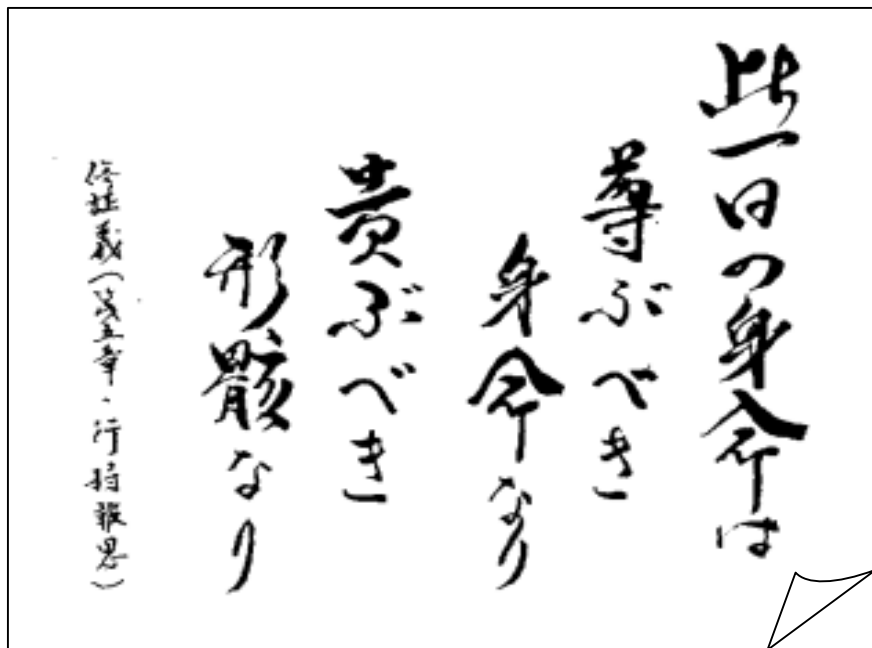 此一日の身命は
尊ぶべき
身命なり
貴ぶべき
形骸なり
修証義(第五章・行持報恩)